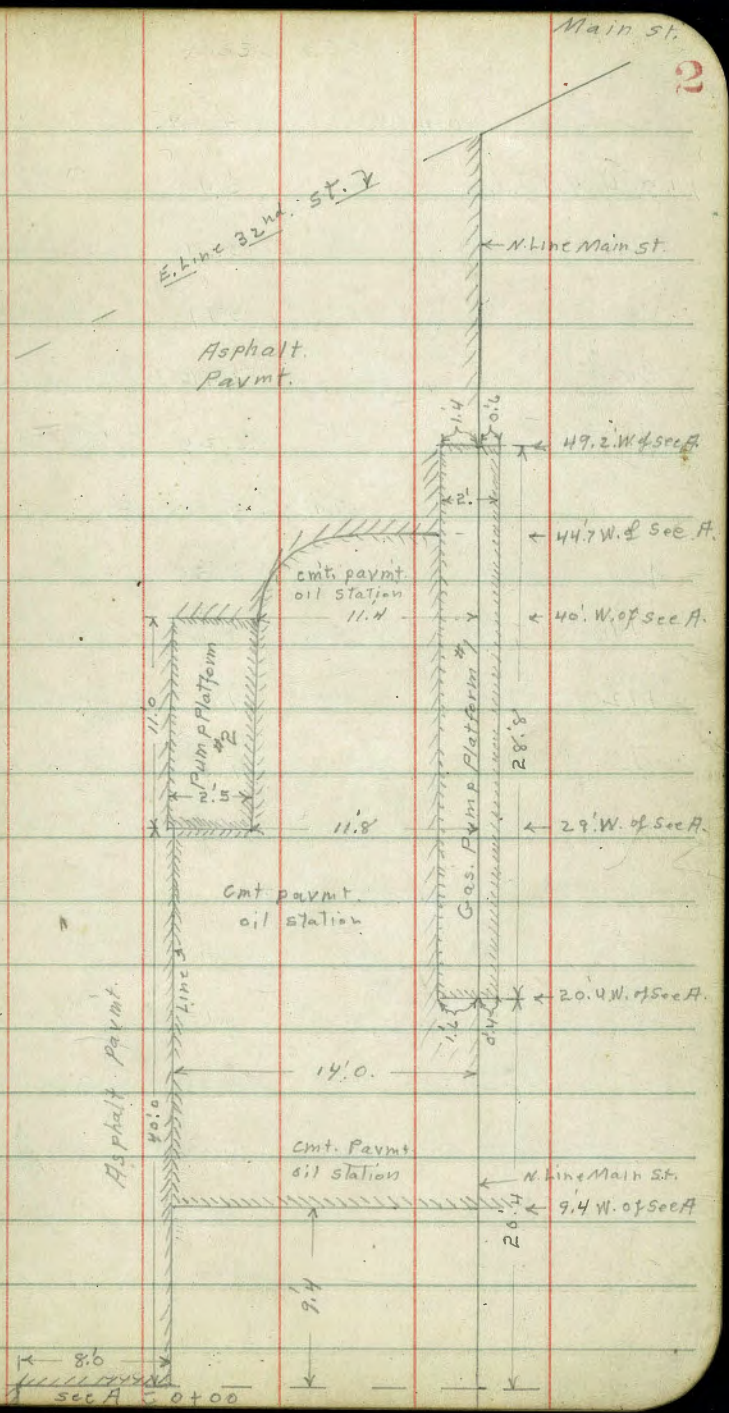 Main st.
2
E. Line 32nd. st.
N. Line Main st.
Asphalt.
Pavmt.
1.4
0.6
49.2. W. of sec A.
2'.
44.7 W. of Sec A.
cmt. pavmt.
oil station
11.4
40'. W. of sec A.
11.0
Pump Platform
#2
2.5
Gas. Pump Platform #1
28.8
11.8
29'. W. of Sec A.
Cmt pavmt.
oil station
Asphalt. Pavmt.
40.0
20.4 W. of Sec A.
1.6
0.4
14.0.
cmt. Pavmt
oil station
N. Line Main St.
9.4 W. of Sec A
20.4
9.4
8.0
sec A = 0+00